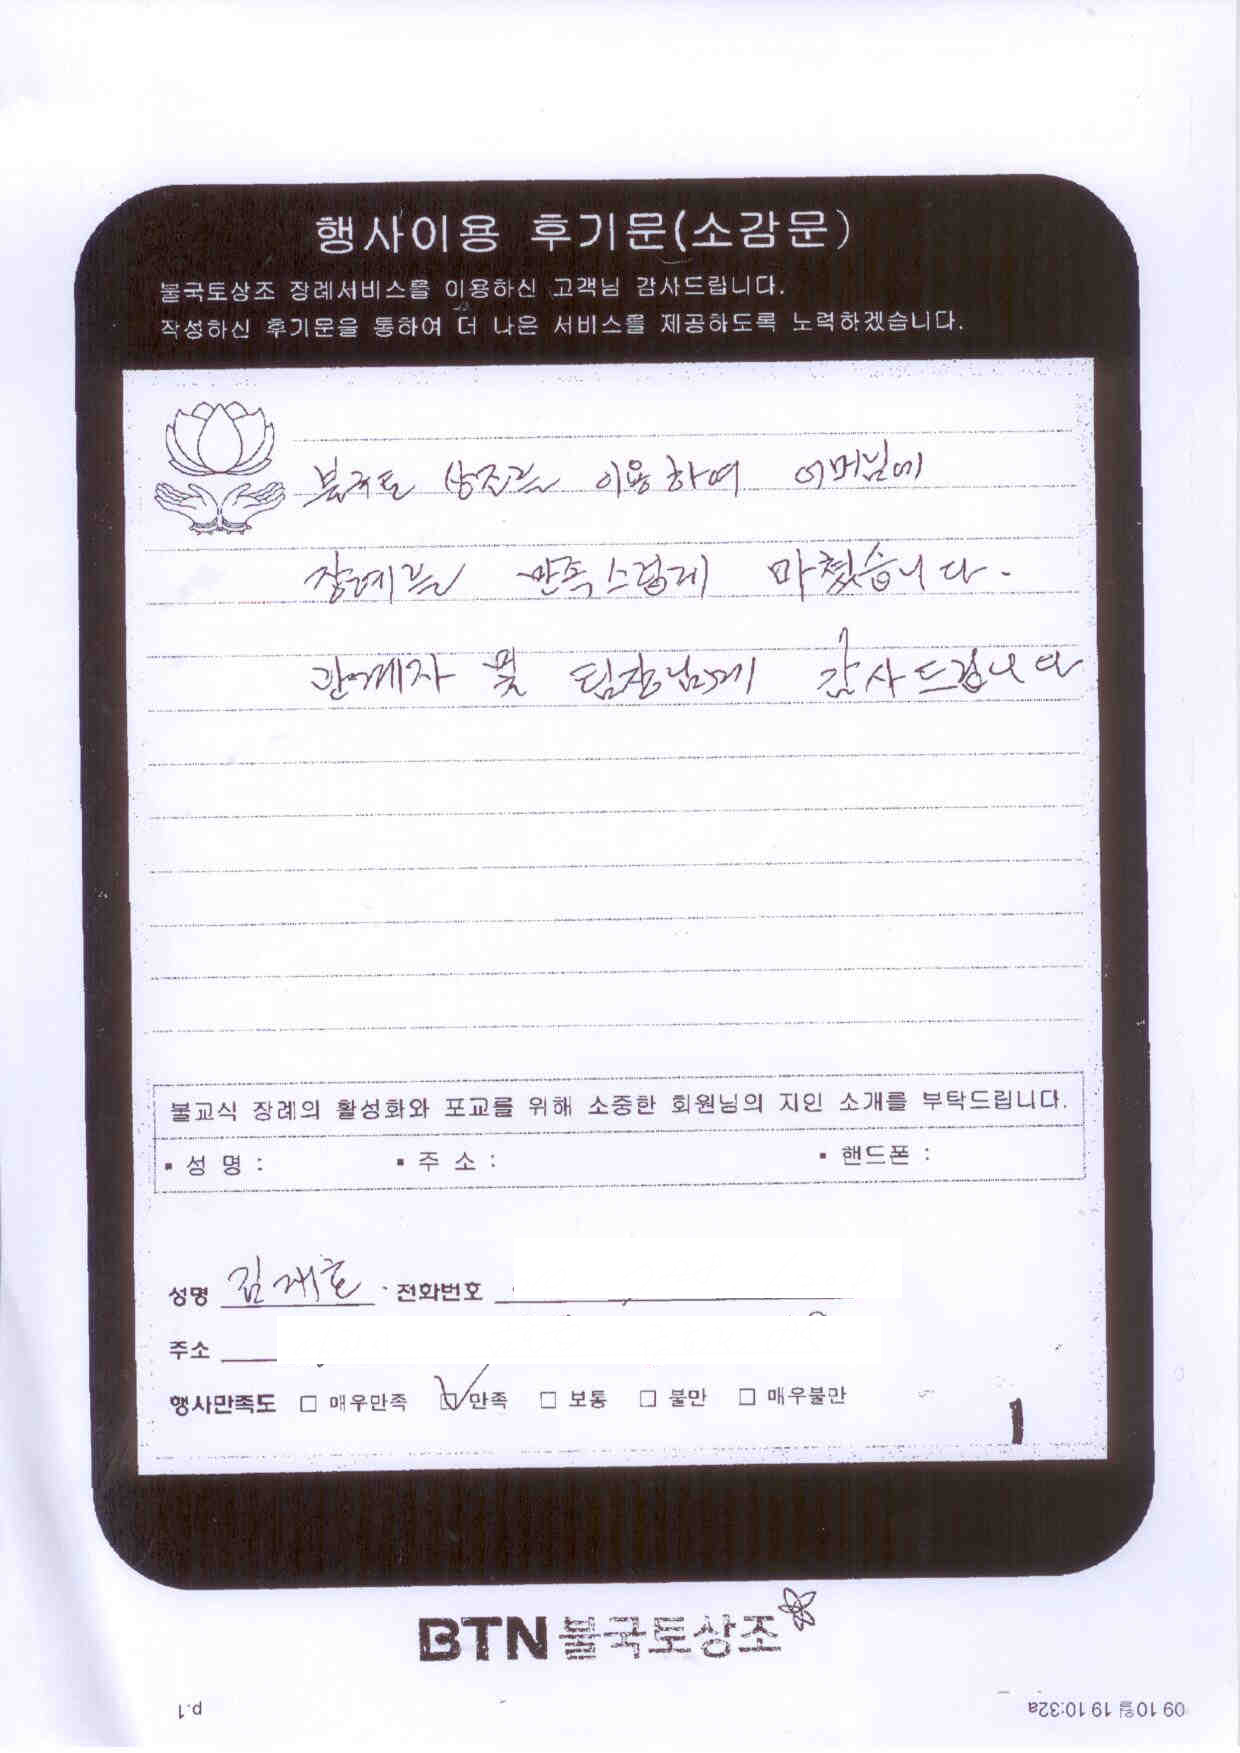 행사이용 후기문(소감문)
불국토상조 장례서비스를 이용하신 고객님 감사드립니다.
작성하신 후기문을 통하여 더 나은 서비스를 제공하도록 노력하겠습니다.
불국토 상조를 이용하여 어머님에
장례를 만족스럽게 마쳤습니다.
관계자 및 팀장님께 감사드립니다
불교식 장례의 활성화와 포교를 위해 소중한 회원님의 지인 소개를 부탁드립니다.
▪ 성 명 : ▪ 주 소 : ▪ 핸드폰 :
성명 김재호 전화번호
주소
행사만족도 □ 매우만족 ☑ 만족 □ 보통 □ 불만 □ 매우불만
BTN 불국토상조
p.1
09 10월 19 10:32a